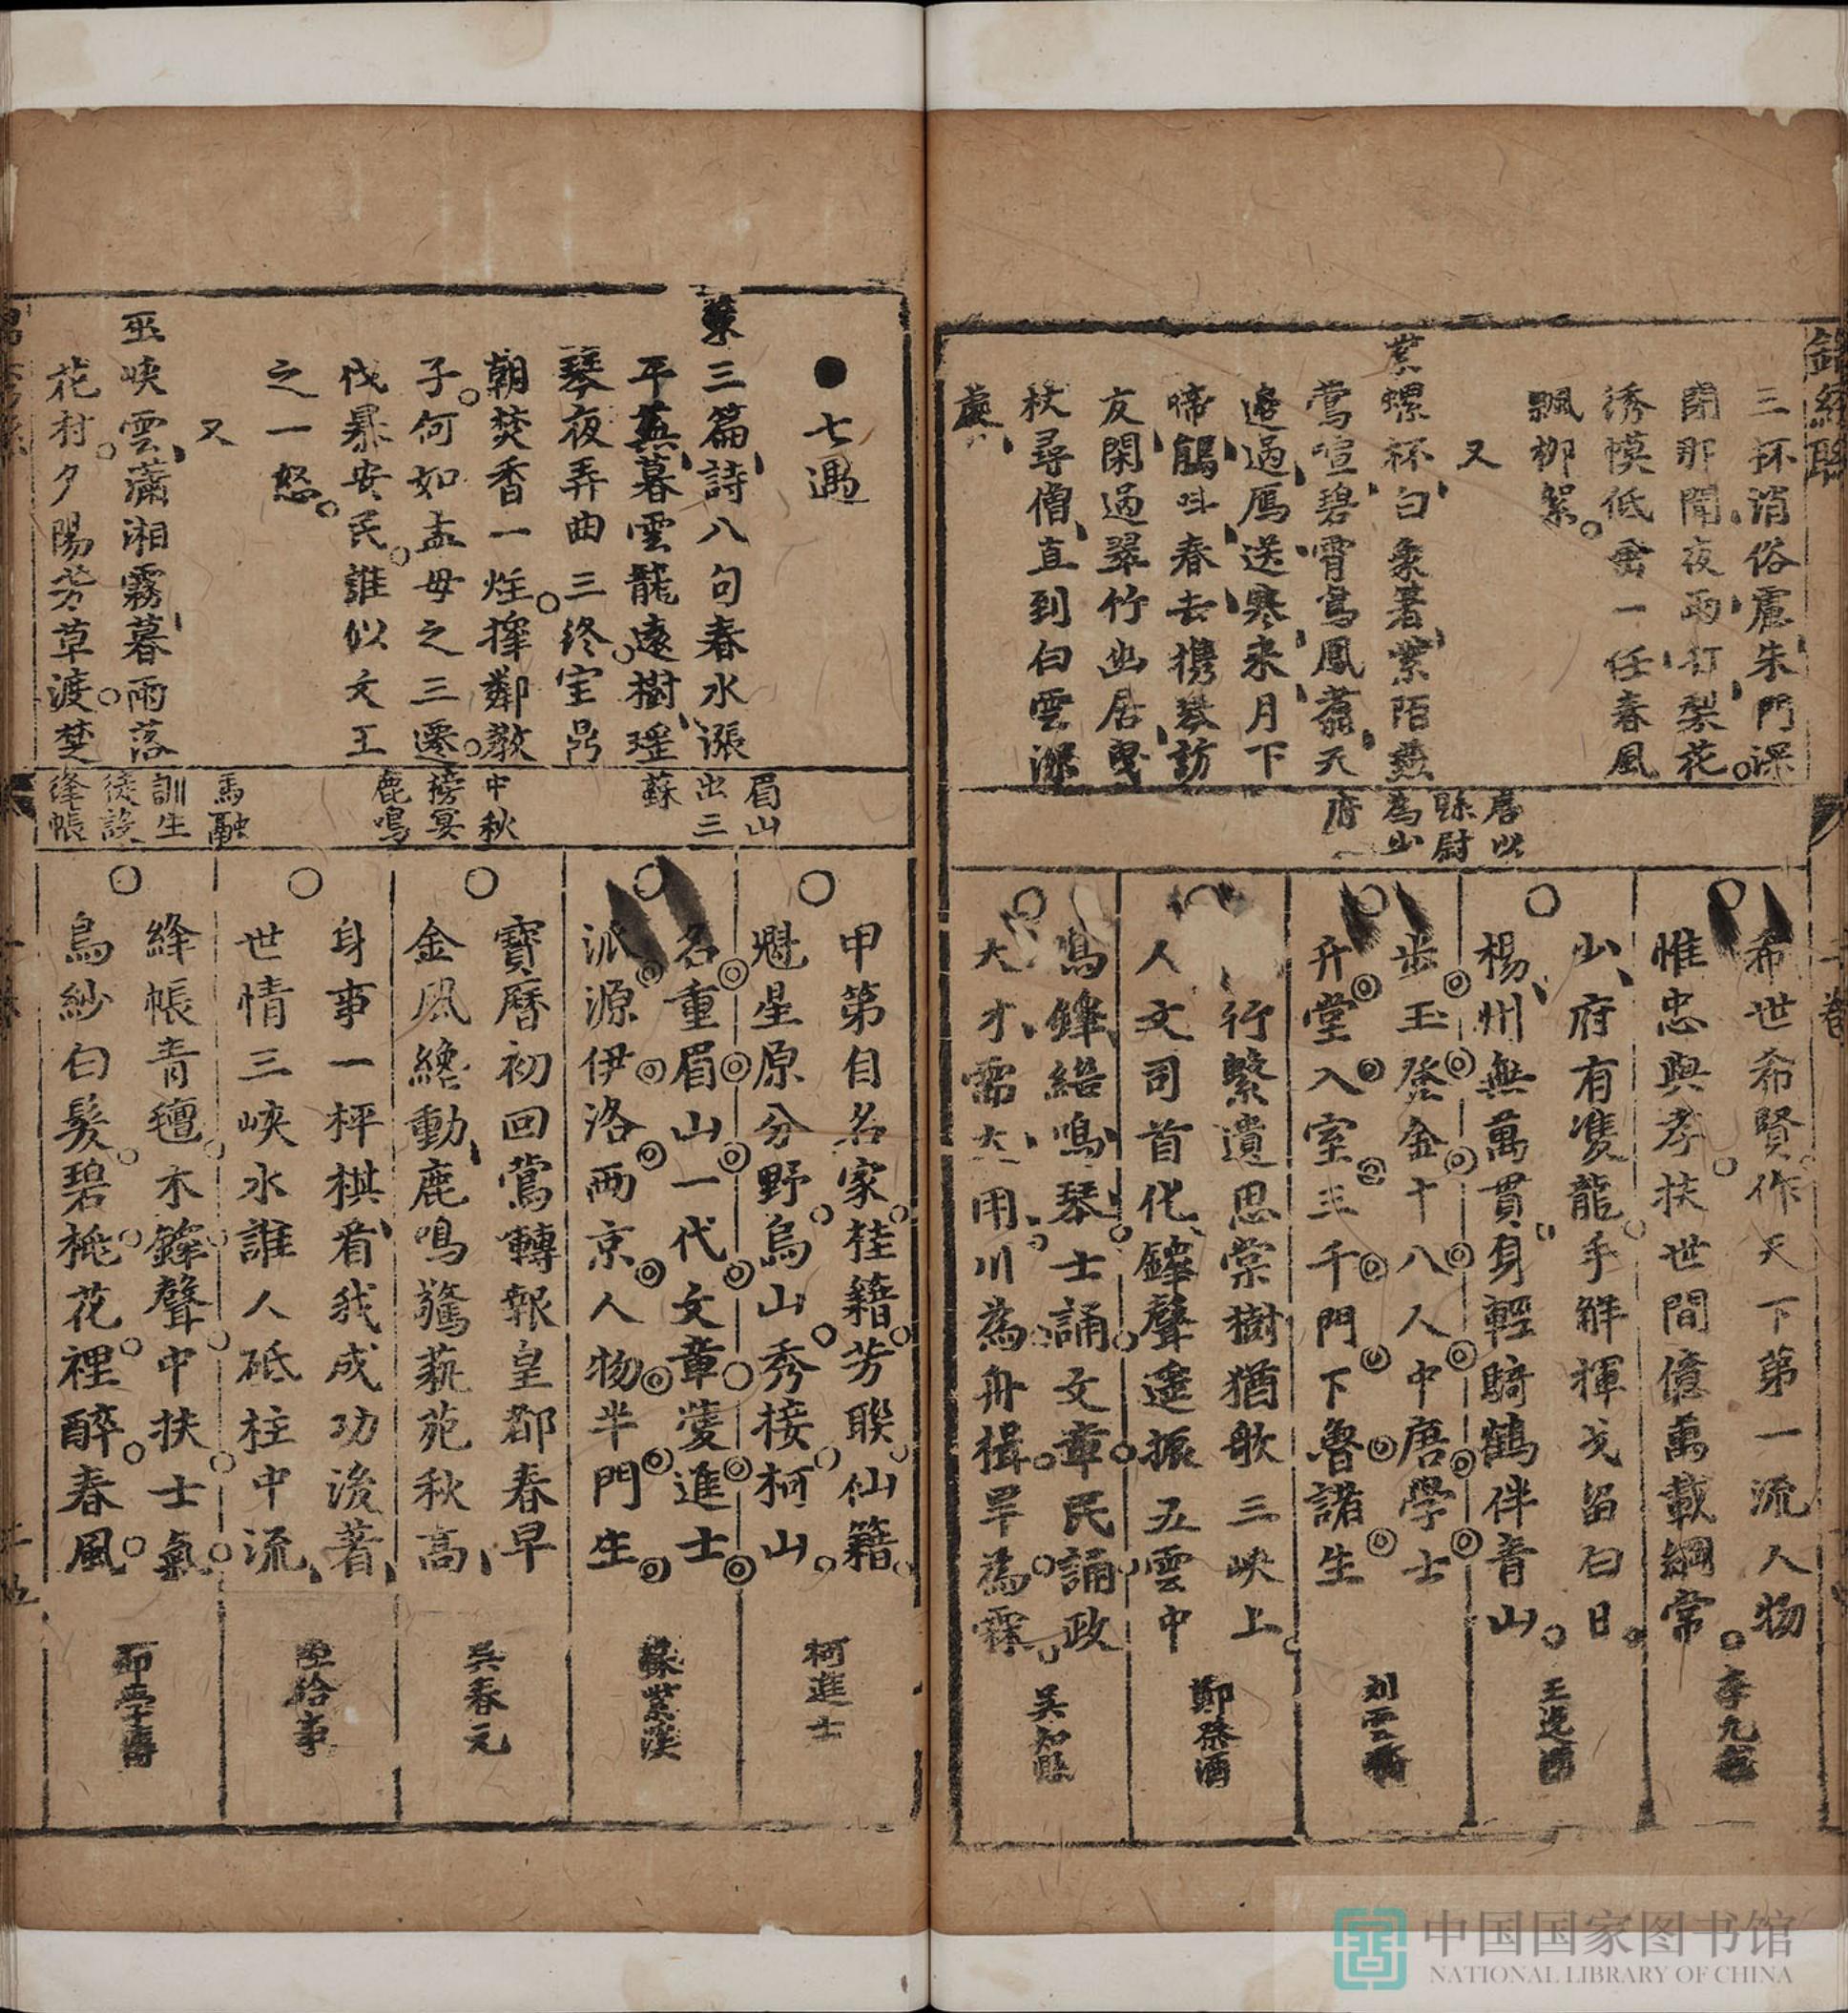 三杯消俗慮朱門深
閉那聞夜雨打梨花
綉幙低垂一任春風
飄柳絮
又
紫螺杯白象箸紫陌燕
鶯喧碧霄鸞鳳翥天
邊過鴈送寒來月下
啼鵑呌春去攜琴訪
友閑過翠竹幽居曳
杖尋僧直到白雲深
處
唐以
縣尉
為少
府
希世希賢作天下第一流人物
惟忠與孝扶世間億萬載綱常
李九
少府有雙龍手解揮戈留白日
楊州無萬貫身輕騎鶴伴青山
王
步玉登金十八人中唐學士
升堂入室三千門下魯諸生
刘雲
行繫遺思棠樹猶歌三峽上
人文司首化鐸聲遙振五雲中
鄭祭酒
鳥鋒結鳴琴士誦文章民誦政
大才需大用川為舟楫旱為霖
吳知縣
七遇
三篇詩八句春水漲
平蕪暮雲龍遠樹瑤
琴夜弄曲三終宝鼎
朝焚香一炷擇鄰教
子何如孟母之三遷
伐暴安民誰似文王
之一怒
又
巫峽雲瀟湘霧暮雨落
花村夕陽芳草渡楚
眉山
出三
蘇
中秋
榜宴
鹿鳴
馬融
訓生
徒設
絳帳
甲第自名家桂籍芳聯仙籍
魁星原分野烏山秀接柯山
柯進士
名重眉山一代文章愛進士
派源伊洛兩京人物半門生
蘇紫溪
寶曆初回鶯轉報皇都春早
金風纔動鹿鳴驚藝苑秋高
吳春元
身事一枰棋看我成功後著
世情三峽水誰人砥柱中流
給事
絳帳青氊木鐸聲中扶士氣
烏紗白髮碧桃花裡醉春風